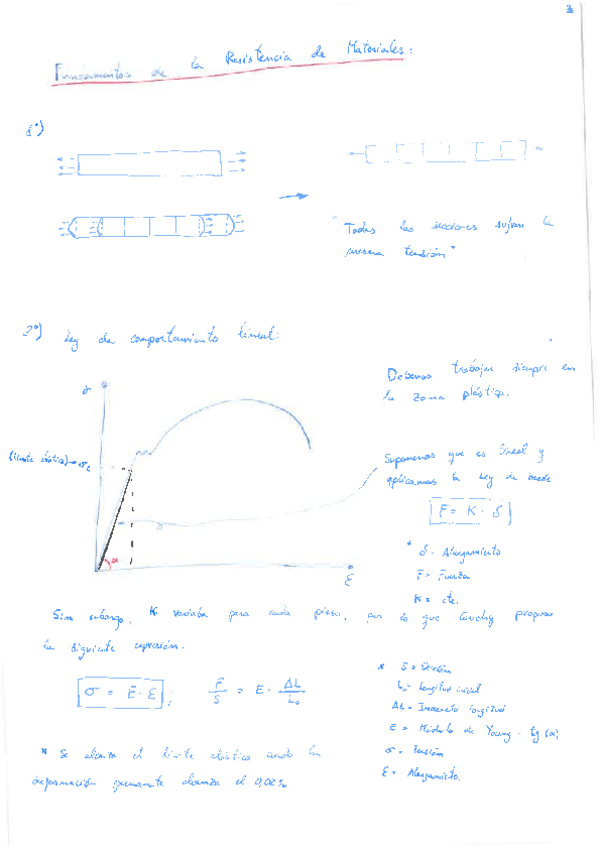 Fundamentos de la Resistencia de Materiales:
1º)
"Todas las secciones sufran la
misma tensión"
2º) Ley de comportamiento lineal:
Debemos trabajar siempre en
la zona plástica.
σ
(límite elástico) → σe
Suponemos que es lineal y
aplicamos la Ley de
F = K · δ
* δ = Alargamiento
F = Fuerza
K = cte.
α
ε
Sin embargo, K variaba para cada pieza, por lo que Cauchy propuso
la siguiente expresión.
σ = E · ε ; F/S = E · ΔL/L₀
* S = Sección
L₀ = Longitud inicial
ΔL = Incremento longitud
E = Módulo de Young = tg (α)
σ = Tensión
ε = Alargamiento.
* Se alcanza el límite elástico cuando la
deformación permanente alcanza el 0,02%